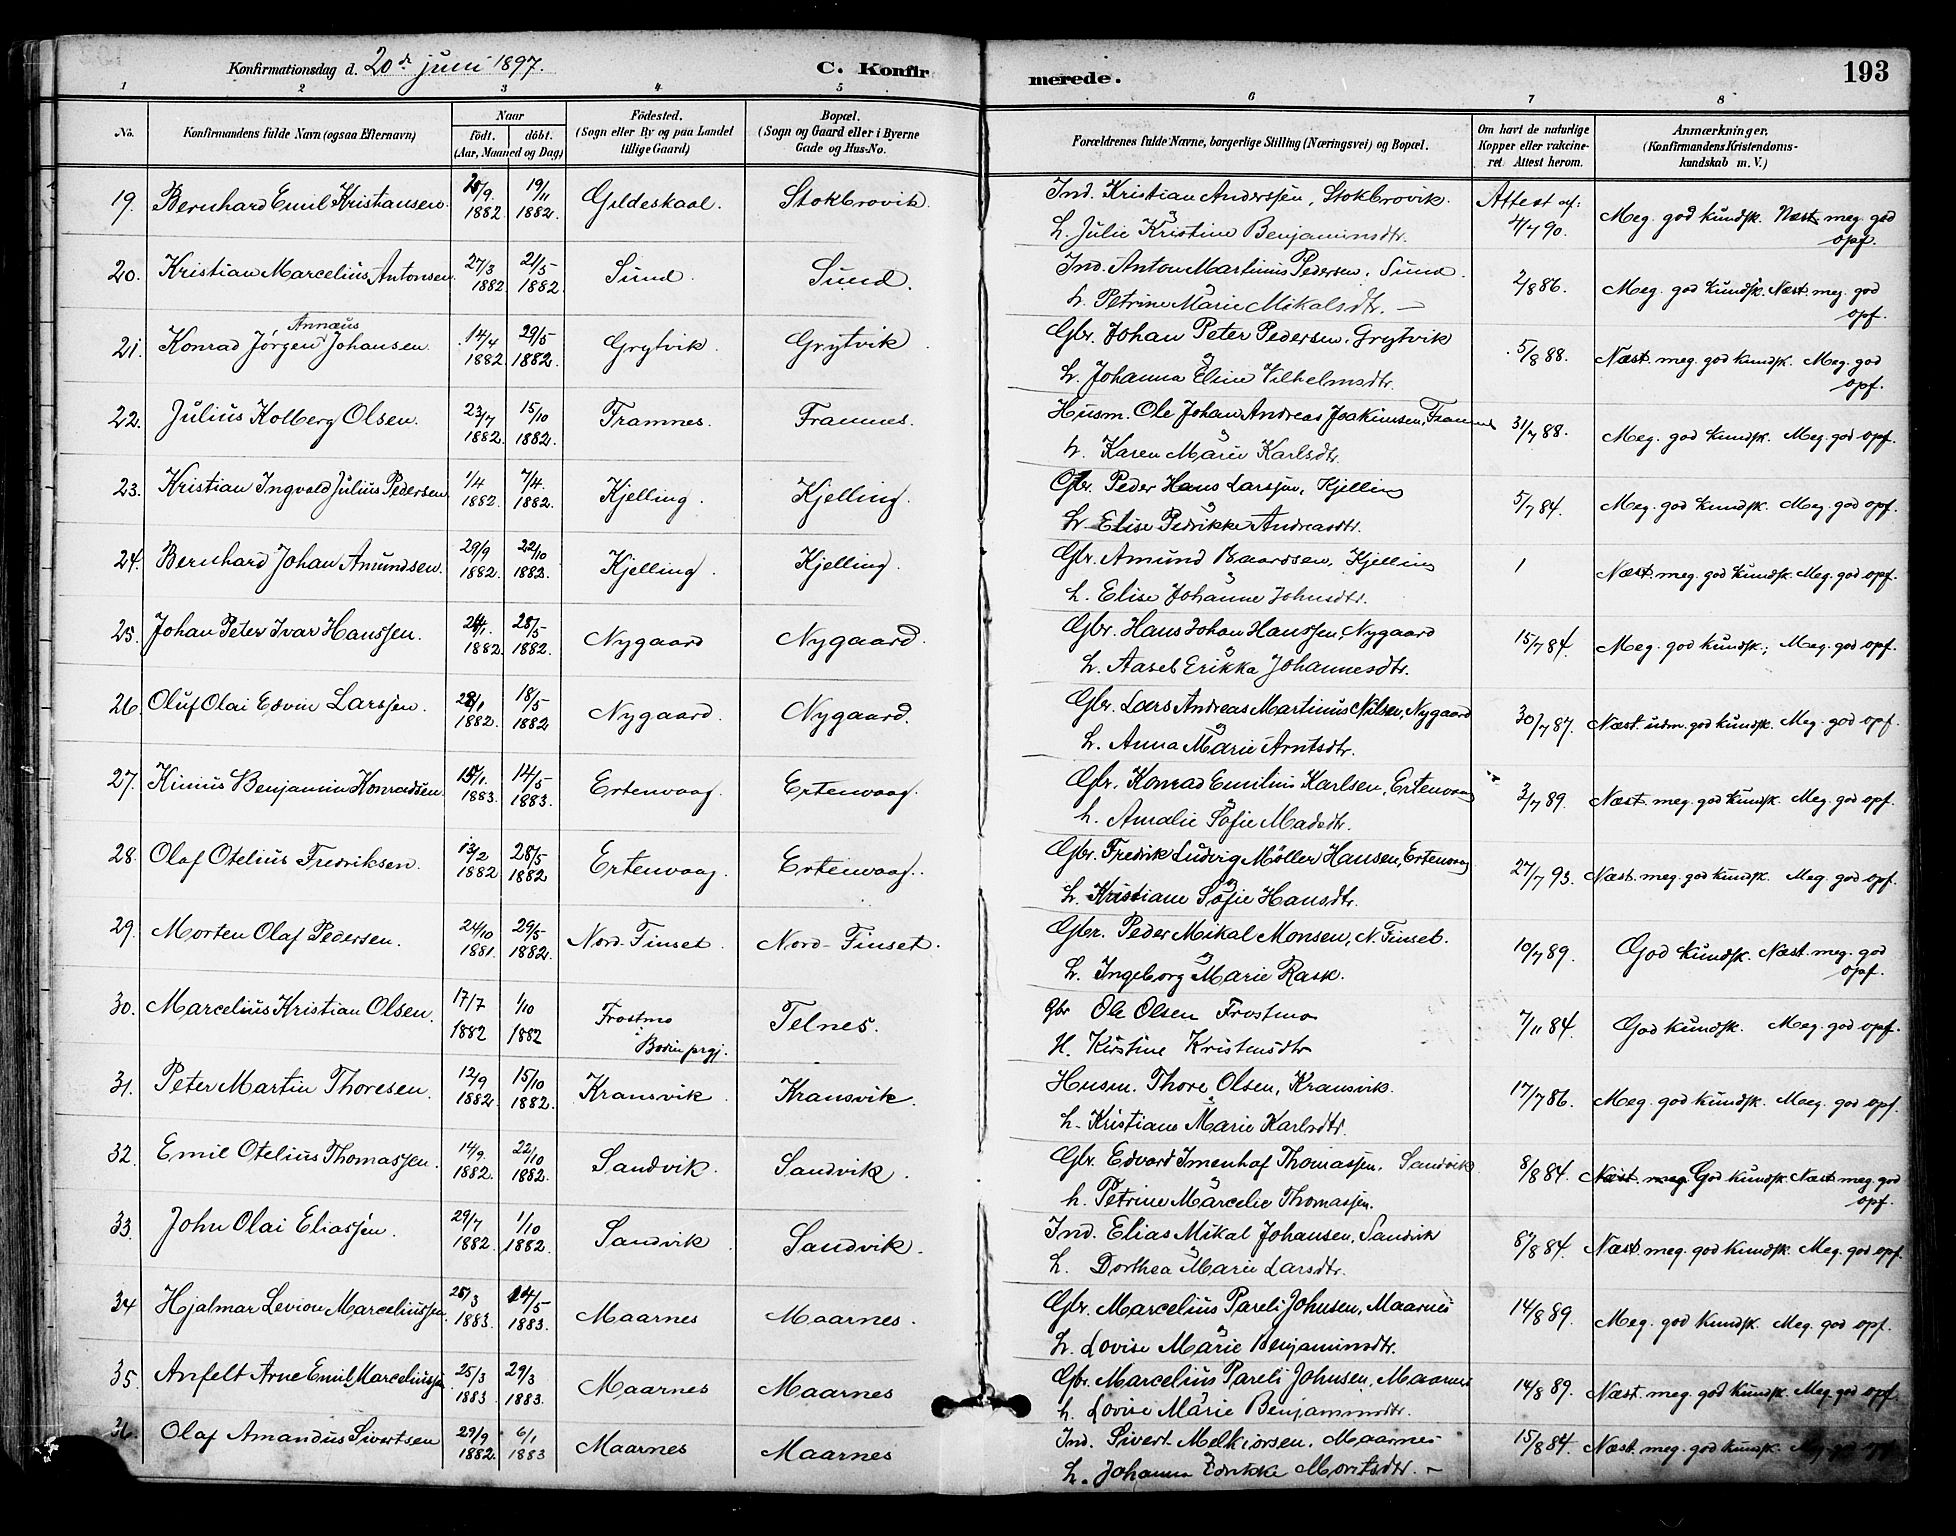 Konfirmationsdag d. 20de juni 1897. C. Konfirmerede. 193
1 2 3 4 5 6 7 8
No. Konfirmandens fulde Navn (ogsaa Efternavn) Naar födt. döbt. (Aar, Maaned og Dag) Födested. (Sogn eller By og paa Landet tillige Gaard) Bopæl. (Sogn og Gaard eller i Byerne Gade og Hus-No. Forældrenes fulde Navne, borgerlige Stilling (Næringsvei) og Bopæl. Om havt de naturlige Kopper eller vaccineret. Attest herom. Anmærkninger. (Konfirmandens Kristendomskundskab m. V.)
19. Bernhard Emil Kristiansen. /9 1882 19/11 1882. Gildeskaal. Stokbrovik. Ind. Kristian Anderssen, Stokbrovik. Attest af: 4/7 90. Meg. god kundsk. Næst meg. god opf.
h. Julie Kristine Benjaminsdtr.
20. Kristian Marcelius Antonsen. 27/3 1882 21/5 1882. Sund. Sund. Ind. Anton Martinus Pedersen, Sund. 2/8 86. Meg. god kundsk. Næst. meg. god opf.
h. Petrine Marie Mikalsdtr. —
21. Konrad Jørgen Annæus Johansen. 14/4 1882 29/5 1882. Grytvik. Grytvik. Gbr. Johan Peter Pedersen, Grytvik 5/8 88. Næst. meg. god kundsk. Meg. god opf.
h. Johanna Eline Vilhelmsdtr.
22. Julius Kolberg Olsen. 23/7 1882. 15/10 1882. Framnes. Framnes. Husm. Ole Johan Andreas Joakimsen, Framnes 31/7 88. Meg. god kundsk. Meg. god opf.
h. Karen Marie Karlsdtr.
23. Kristian Ingvold Julius Pedersen 1/4 1882. 7/4. 1882. Kjelling. Kjelling. Gbr. Peder Hans Larssen, Kjelling 5/7 84. Meg. god kundsk. Meg. god opf.
h. Elise Pedrikke Andreasdtr.
24. Bernhard Johan Amundsen. 29/9 1882. 22/10 1882. Kjelling. Kjelling. Gbr. Amund Baardsen, Kjelling 1 Næst. meg. god kundsk. Meg. god opf.
h. Elise Johanne Johnsdtr.
25. Johan Peter Ivar Hanssen. /1. 1882. 28/5 1882. Nygaard Nygaard. Gbr. Hans Johan Hanssen, Nygaard 15/7 84. Meg. god kundsk.; Meg. god opf.
h. Aasel Erikka Johannesdtr.
26. Oluf Olai Edvin Larssen. /1 1882. 18/5 1882 Nygaard. Nygaard. Gbr. Lars Andreas Martinus Nilsen, Nygaard 30/7 87. Næst. udm. god kundsk. Meg. god opf.
h. Anna Marie Arntsdtr.
27. Kinius Benjamin Konradsen 15/1. 1883. 14/5 1883. Ertenvaag. Ertenvaag. Gbr. Konrad Emilius Karlsen, Ertenvaag 3/7 89. Næst. meg. god kundsk. Meg. god opf.
h. Amalie Sofie Madsdtr.
28. Olaf Otelius Fredriksen. 13/2 1882 28/5 1882 Ertenvaag. Ertenvaag. Gbr. Fredrik Ludvig Möller Hansen, Ertenvaag 27/7 93. Næst. meg. god kundsk. Meg. god opf.
h. Kristiane Sofie Hansdtr.
29. Morten Olaf Pedersen. 24/10 1881. 29/5 1882. Nord-Finset. Nord-Finset. Gbr. Peder Mikal Monsen, N. Finset. 10/7 89. God kundsk. Næst. meg. god opf.
h. Ingeborg Marie Rask.
30. Marcelius Kristian Olsen. 17/7 1882 1/10 1882 Frostmo i Bodin prgj. Telnes. Gbr Ole Olsen Frostmo 7/11 84. God kundsk. Meg. god opf.
H. Kirstine Kristensdtr
31. Peter Martin Thoresen. 12/9 1882. 15/10 1882. Kransvik. Kransvik. Husm. Thore Olsen, Kransvik. 17/7 86. Meg. god kundsk. Meg. god opf.
h. Kristiane Marie Karlsdtr.
32. Emil Otelius Thomassen. 14/9. 1882. 22/10 1882. Sandvik. Sandvik. Gbr. Edvard Imenhof Thomassen, Sandvik. 8/8 84. Næst. meg God kundsk. Næst meg. god opf.
h. Petrine Marcelie Thomassen.
33. John Olai Eliassen. 29/7 1882. 1/10 1882. Sandvik. Sandvik. Ind. Elias Mikal Johansen, Sandvik 8/8 84. Næst. meg. god kundsk. Meg. god opf.
h. Dorthea Marie Larsdtr.
34 Hjalmar Levion Marceliussen. 25/3 1883. /5 1883. Maarnes Maarnes. Gbr. Marcelius Pareli Johnsen, Maarnes 14/8 89. Meg. god kundsk. Meg. god opf.
h. Lovise Marie Benjaminsdtr.
35. Anfelt Arne Emil Marceliussen 25/3 1883. 29/3 1883. Maarnes Maarnes Gbr. Marcelius Pareli Johnsen, Maarnes 14/8 89. Næst. meg. god kundsk. Meg. god opf.
h. Lovise Marie Benjaminsdtr.
36. Olaf Amandus Sivertsen 29/9 1882. 6/1 1883 Maarnes Maarnes Ind. Sivert Melkiorsen, Maarnes 15/8 84. Næst. meg. god kundsk.
h. Johanna Edrikke Moritsdtr. —